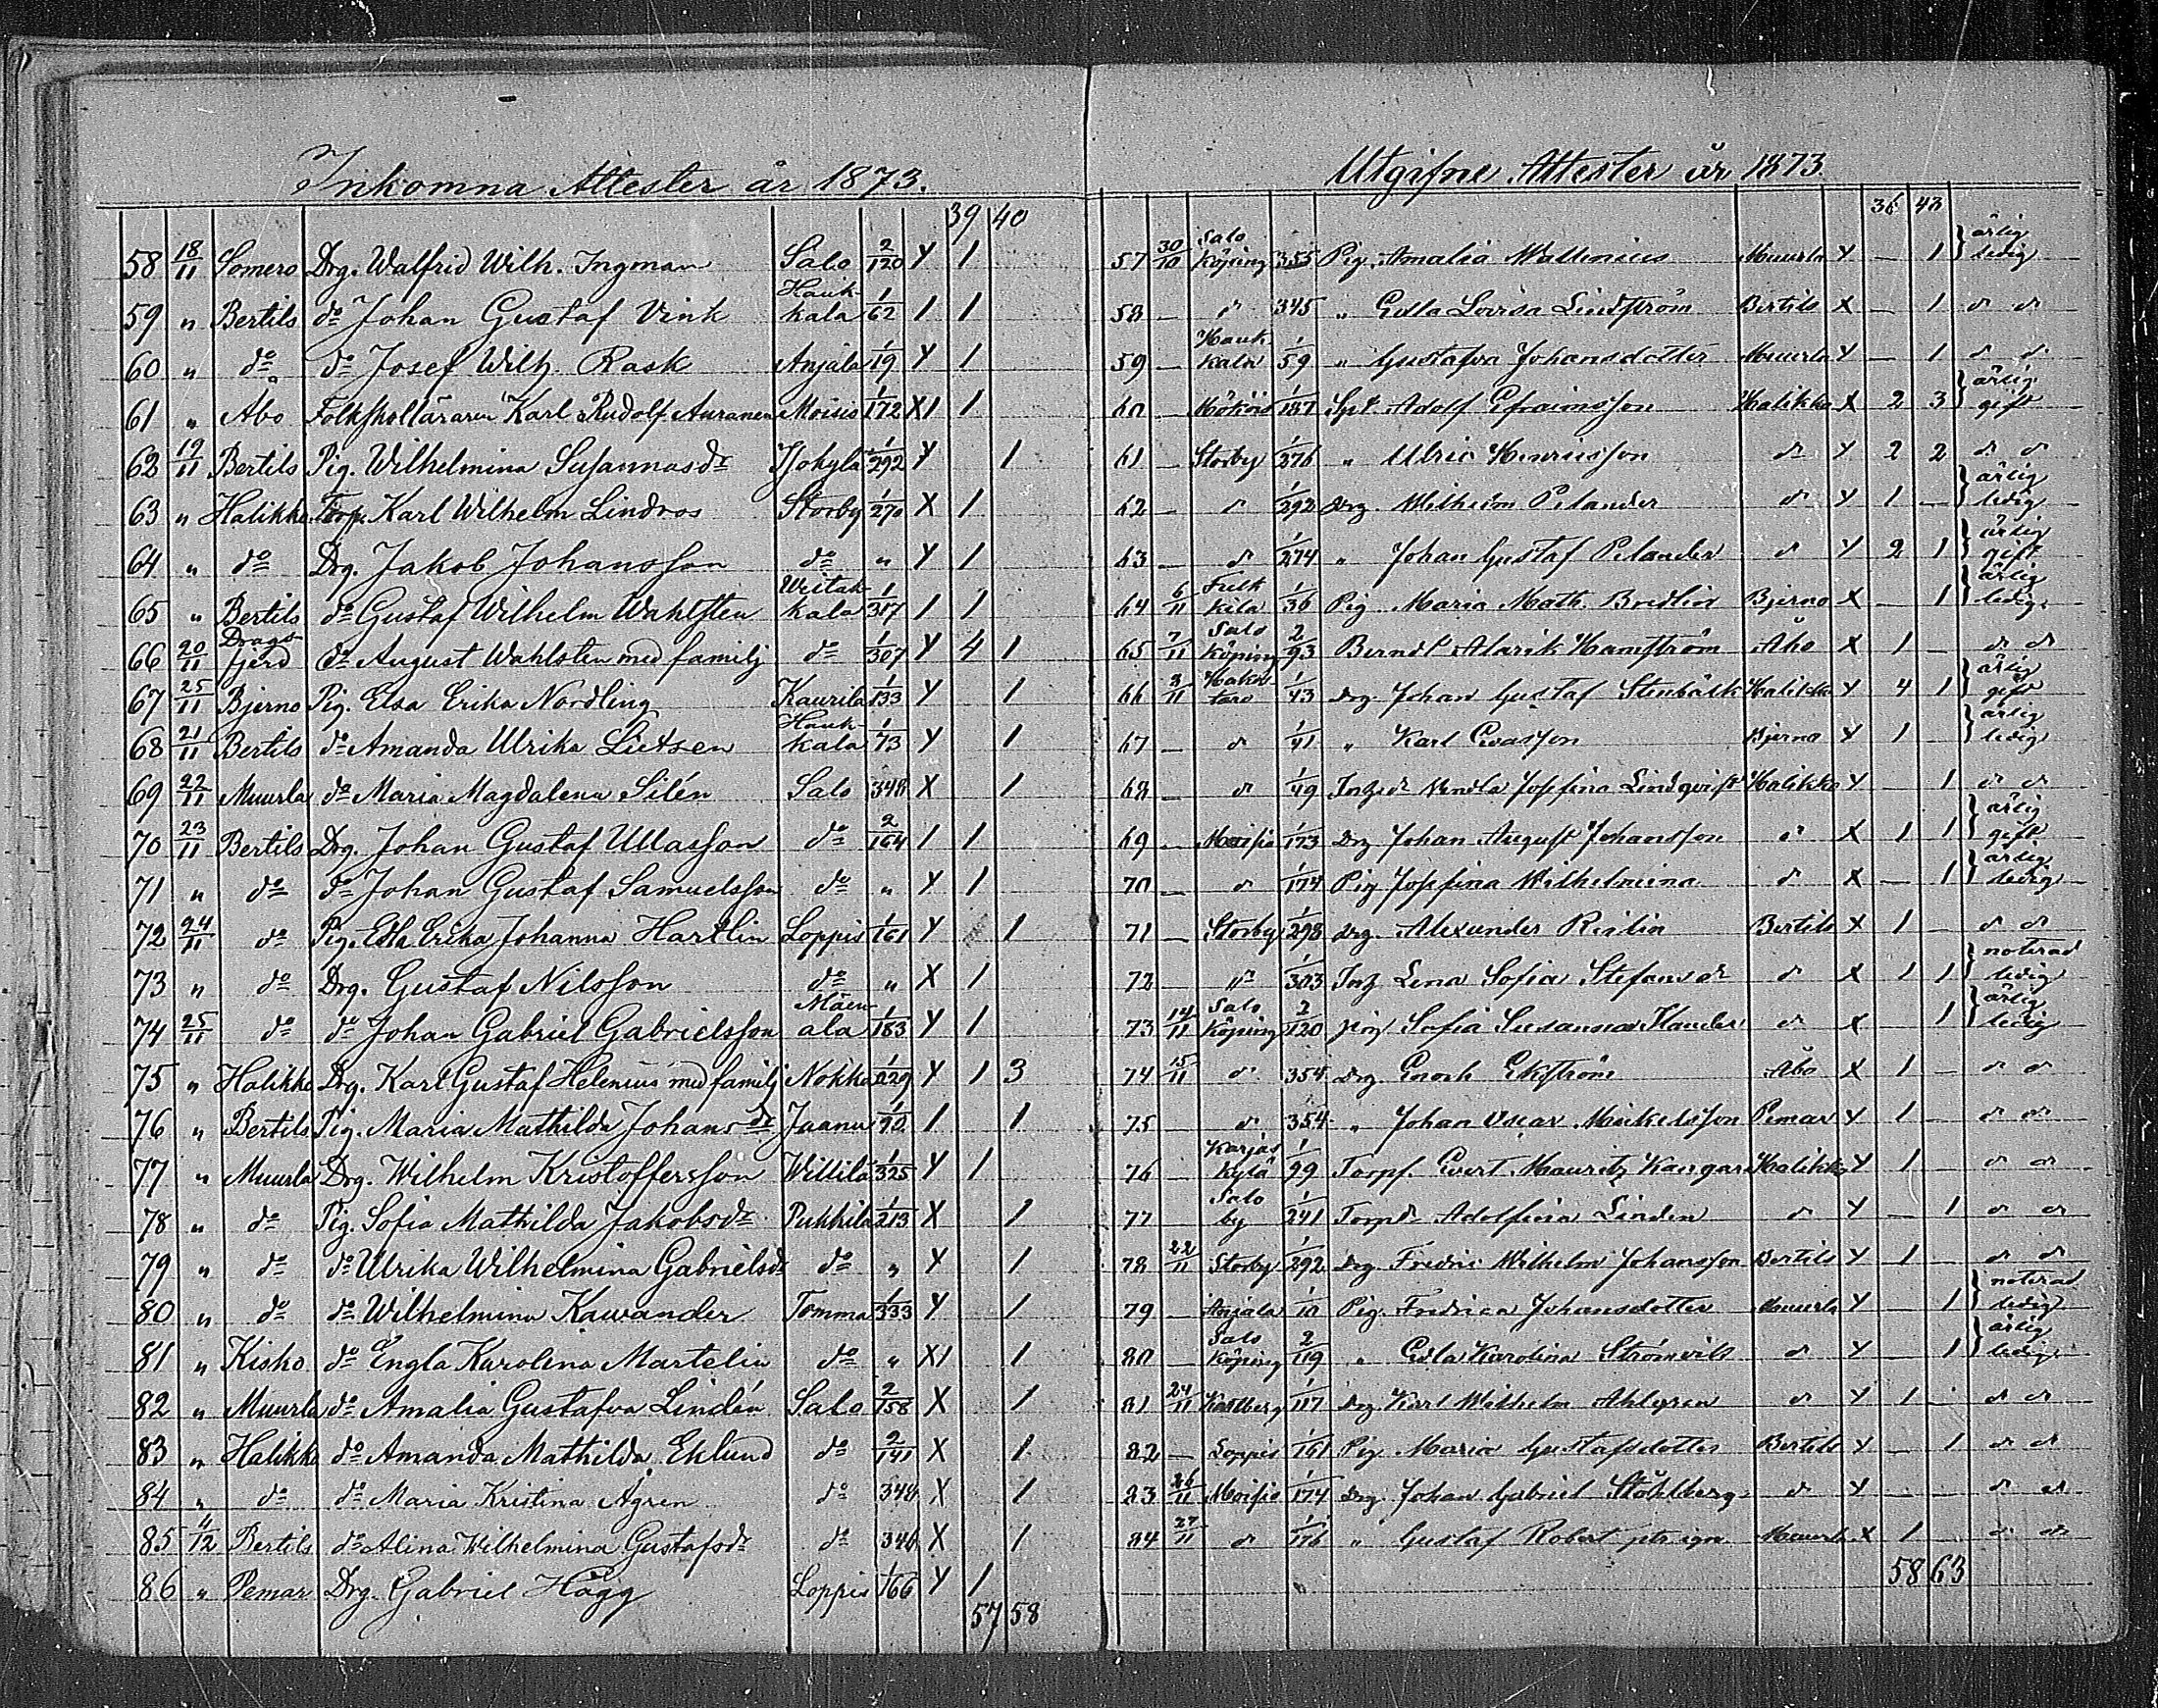 Inkomna Attester år 1873.
39 40
58 18/11 Somero Drg. Walfrid Wilh. Ingman Salo 2/120 Y 1
59 " Bertils do Johan Gustaf Vink Haukkala 1/62 1 1
60 " do do Josef Wilh. Rask Anjala 1/19 Y 1
61 " Åbo Folkskolläraren Karl Rudolf Auranen Moisio 1/172 XI 1
62 19/11 Bertils Pig. Wilhelmina Susannasdr Isokylä 1/292 Y 1
63 " Halikko Torp. Karl Wilhelm Lindros Storby 1/270 X 1
64 " do Drg. Jakob Johansson do " Y 1
65 " Bertils do Gustaf Wilhelm Wahlsten Weitakkala 1/317 1 1
66 20/11 Dragsfjerd do August Wahlsten med familj do 1/307 Y 4 1
67 25/11 Bjerno Pig. Elsa Erika Nordling Kaurila 1/133 Y 1
68 21/11 Bertils do Amanda Ulrika Lietsen Haukkala 1/73 Y 1
69 22/11 Muurla do Maria Magdalena Silén Salo 348 X 1
70 23/11 Bertils Drg. Johan Gustaf Ullasson do 2/164 1 1
71 " do do Johan Gustaf Samuelsson do " Y 1
72 24/11 do Pig. Edla Erika Johanna Hartlin Loppis 1/161 Y 1
73 " do Drg. Gustaf Nilsson do " X 1
74 25/11 do do Johan Gabriel Gabrielsson Mäenala 1/183 Y 1
75 " Halikko Drg. Karl Gustaf Helenius med familj Nokka 229 Y 1 3
76 " Bertils Pig. Maria Mathilda Johansdr Jaanu 1/70 1 1
77 " Muurla Drg. Wilhelm Kristoffersson Willilä 1/325 Y 1
78 " do Pig. Sofia Mathilda Jakobsdr Pukkila 1/213 X 1
79 " do do Ulrika Wilhelmina Gabrielsdr do " Y 1
80 " do do Wilhelmina Kavander Tomma 1/333 Y 1
81 " Kisko do Engla Karolina Martelin do " XI 1
82 " Muurla do Amalia Gustafva Lindén Salo 2/158 X 1
83 " Halikko do Amanda Mathilda Eklund do 2/141 X 1
84 " do do Maria Kristina Ågren do 348 X 1
85 4/12 Bertils do Alina Wilhelmina Gustafsdr do 346 X 1
86 " Pemar Drg. Gabriel Hägg Loppis 1/166 Y 1
57 58
Utgifne Attester år 1873.
36 43
57 30/10 Salo Köping 355 Pig. Amalia Wallenius Muurla Y — 1 ärlig ledig
58 — d 345 " Edla Lovisa Lindström Bertils X — 1 d d
59 — Haukkala 1/59 " Gustafva Johansdotter Muurla Y — 1 d d
60 — 1/187 Adolf Efraimsson Halikko X 2 3 ärlig gift
61 — Storby 1/276 " Ulric Henricsson d Y 2 2 d d
62 — d 1/292 Drg. Wilhelm Pelander d Y 1 — ärlig ledig
63 — d 1/274 " Johan Gustaf Pelander d Y 2 1 ärlig gift
64 6/11 1/36 Pig. Maria Math. Bredlin Bjerno X — 1 ärlig ledig
65 7/11 Salo Köping 2/93 Berndt Alarik Hamström Åbo X 1 — d d
66 8/11 1/43 Drg. Johan Gustaf Stenbäck Halikko Y 4 1 ärlig gift
67 — d 1/41 " Karl Evasson Bjerno Y 1 ärlig ledig
68 — d 1/49 Vendla Josefina Lindqvist Halikko Y 1 d d
69 — Moisio 1/173 Drg Johan August Johansson d X 1 1 ärlig gift
70 — d 1/174 Pig Josefina Wilhelmina d X — 1 ärlig ledig
71 — Storby 1/298 drg. Alexander Bertils X 1 — d d
72 — " 1/303 Inh. Lena Sofia Stefansdr d X 1 1 noterad ledig
73 14/11 Salo Köping 2/120 pig Sofia Susanna d X 1 ärlig ledig
74 15/11 d 354 Drg Enoch Ekström Åbo X 1 — d d
75 d 354 " Johan Oscar Mickelsson Pemar Y 1 — d d
76 Karjaskylä 1/29 Torpf. Evert Mauritz Halikko Y 1 — d d
77 Saloby 1/241 Adolfina Linden d Y — 1 d d
78 22/11 Storby 1/292 drg. Fredric Wilhelm Johansson Bertils Y 1 — d d
79 — Anjala 1/10 Pig. Fredrica Johansdotter Muurla Y 1 noterad ledig
80 — Salo Köping 2/119 " Edla Karolina d Y — 1 ärlig ledig
81 24/11 Karlberg 1/117 Drg. Karl Wilhelm Ahlgren d Y 1 d d
82 — Loppis 1/161 Pig. Maria Gustafsdotter Bertils Y — 1 d d
83 26/11 Moisio 1/174 Drg. Johan Gabriel Ståhlberg d Y d d
84 27/11 d 1/176 " Gustaf Robert Muurla X 1 d d
58 63